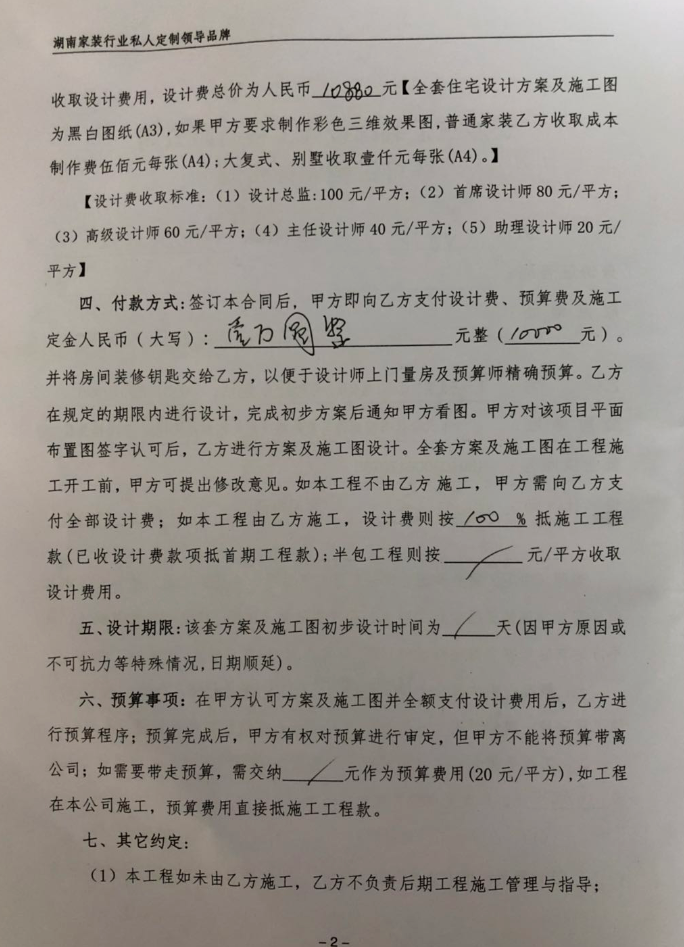 湖南家装行业私人定制领导品牌
收取设计费用，设计费总价为人民币 10880 元【全套住宅设计方案及施工图
为黑白图纸(A3),如果甲方要求制作彩色三维效果图,普通家装乙方收取成本
制作费伍佰元每张(A4);大复式、别墅收取壹仟元每张(A4)。】
【设计费收取标准:（1）设计总监:100 元/平方;（2）首席设计师 80 元/平方;
（3）高级设计师 60 元/平方;（4）主任设计师 40 元/平方;（5）助理设计师 20 元/
平方】
四、付款方式:签订本合同后，甲方即向乙方支付设计费、预算费及施工
定金人民币（大写）: 壹万圆整 元整（10000 元）。
并将房间装修钥匙交给乙方，以便于设计师上门量房及预算师精确预算。乙方
在规定的期限内进行设计，完成初步方案后通知甲方看图。甲方对该项目平面
布置图签字认可后，乙方进行方案及施工图设计。全套方案及施工图在工程施
工开工前，甲方可提出修改意见。如本工程不由乙方施工，甲方需向乙方支
付全部设计费；如本工程由乙方施工，设计费则按 100 % 抵施工工程
款(已收设计费款项抵首期工程款);半包工程则按 / 元/平方收取
设计费用。
五、设计期限:该套方案及施工图初步设计时间为 / 天(因甲方原因或
不可抗力等特殊情况,日期顺延)。
六、预算事项：在甲方认可方案及施工图并全额支付设计费用后，乙方进
行预算程序；预算完成后，甲方有权对预算进行审定，但甲方不能将预算带离
公司；如需要带走预算，需交纳 / 元作为预算费用(20 元/平方),如工程
在本公司施工，预算费用直接抵施工工程款。
七、其它约定：
（1）本工程如未由乙方施工，乙方不负责后期工程施工管理与指导；
-2-